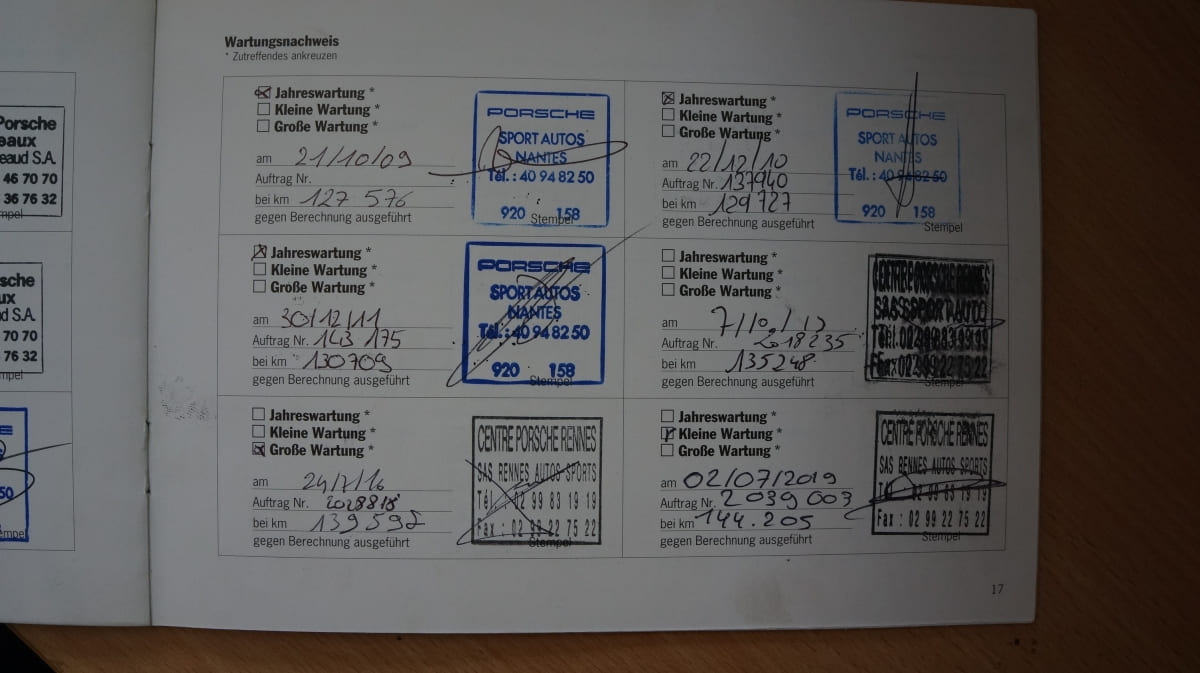 Porsche
eaux
eaud S.A.
46 70 70
36 76 32
mpel
sche
ux
d S.A.
70 70
76 32
mpel
50
mpel
Wartungsnachweis
* Zutreffendes ankreuzen
Jahreswartung *
Kleine Wartung *
Große Wartung *
am 21/10/09
Auftrag Nr.
bei km 127 576
gegen Berechnung ausgeführt
PORSCHE
SPORT AUTOS
NANTES
Tél. : 40 94 82 50
920 158
Stempel
Jahreswartung *
Kleine Wartung *
Große Wartung *
am 22/12/10
Auftrag Nr. 137940
bei km 129727
gegen Berechnung ausgeführt
PORSCHE
SPORT AUTOS
NANTES
Tél. : 40 94 82 50
920 158
Stempel
Jahreswartung *
Kleine Wartung *
Große Wartung *
am 30/12/11
Auftrag Nr. 143 175
bei km 130709
gegen Berechnung ausgeführt
PORSCHE
SPORT AUTOS
NANTES
Tél. : 40 94 82 50
920 158
Stempel
Jahreswartung *
Kleine Wartung *
Große Wartung *
am 7/10/13
Auftrag Nr. 2018235
bei km 135248
gegen Berechnung ausgeführt
CENTRE PORSCHE RENNES
SAS SPORT AUTO
Tél. 02 99 83 19 19
Fax 02 99 22 75 22
Stempel
Jahreswartung *
Kleine Wartung *
Große Wartung *
am
Auftrag Nr. 2028818
bei km 139592
gegen Berechnung ausgeführt
CENTRE PORSCHE RENNES
SAS RENNES AUTOS SPORTS
Tél. : 02 99 83 19 19
Fax : 02 99 22 75 22
Stempel
Jahreswartung *
Kleine Wartung *
Große Wartung *
am 02/07/2019
Auftrag Nr. 2 039 003
bei km 144.205
gegen Berechnung ausgeführt
CENTRE PORSCHE RENNES
SAS RENNES AUTOS SPORTS
Tél : 02 99 83 19 19
Fax : 02 99 22 75 22
Stempel
17